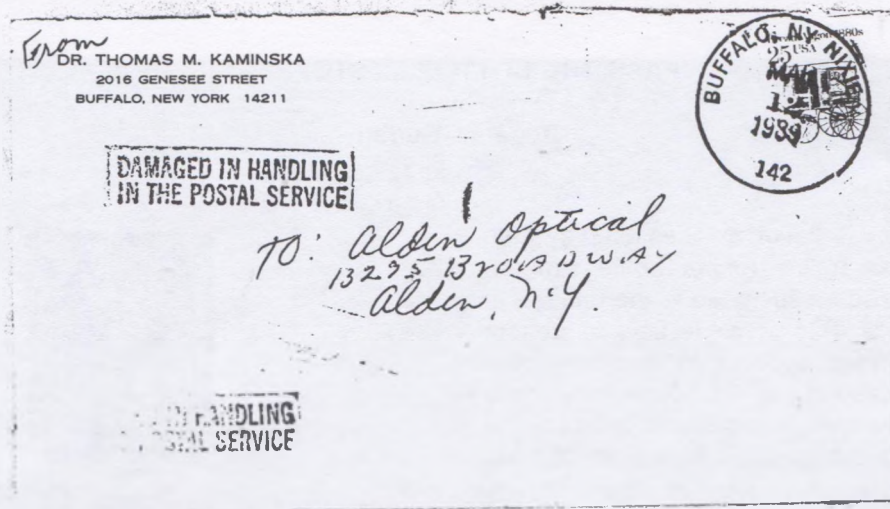 From
DR. THOMAS M. KAMINSKA
2016 GENESEE STREET
BUFFALO, NEW YORK 14211
BUFFALO, NY NIXIE
1880s
25 USA
MAR
1989
142
DAMAGED IN HANDLING
IN THE POSTAL SERVICE
TO: Alden Optical
13295 BROADWAY
Alden, N.Y.
HANDLING
POSTAL SERVICE